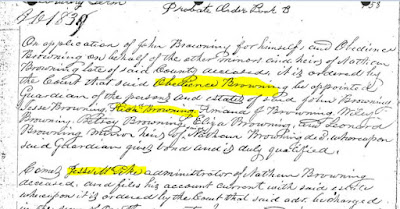 Probate Order Book B 53
1839
On application of John Browning for himself and Obedience
Browning on behalf of the other minor and heirs of Nathan
Browning late of said County deceased, it is ordered by
the Court that said Obedience Browning be appointed
Guardian of the persons and estates of said John Browning
Jesse Browning, Browning, F. Browning, Wiley
Browning, Patsey Browning, Eliza Browning, and Leonard
Browning minor heirs of Nathan Browning dec'd whereupon
said Guardian gives bond and is duly qualified
Comes Jesse administrator of Nathan Browning
deceased and files his account current with said estate
whereupon it is ordered by the Court that said adr. be charged